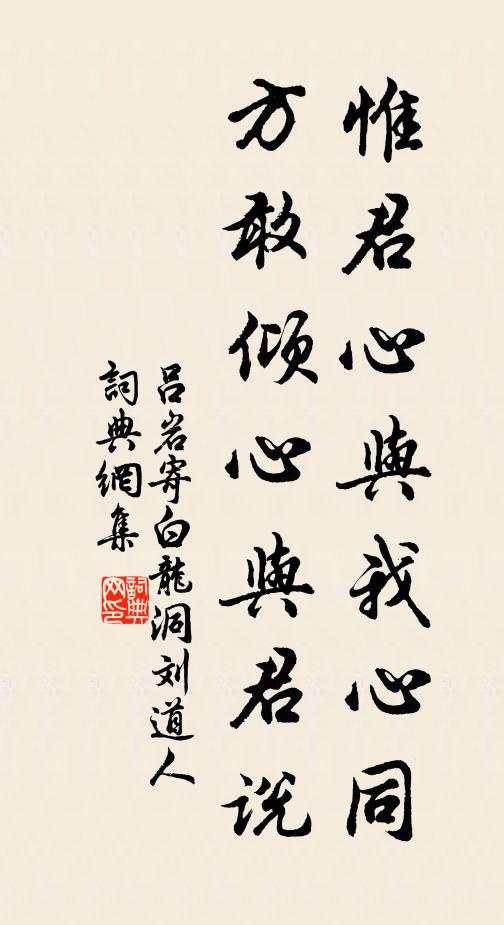 惟君心與我心同
方敢傾心與君説
吕岩寄白龍洞刘道人
詞典網集
詞典網印